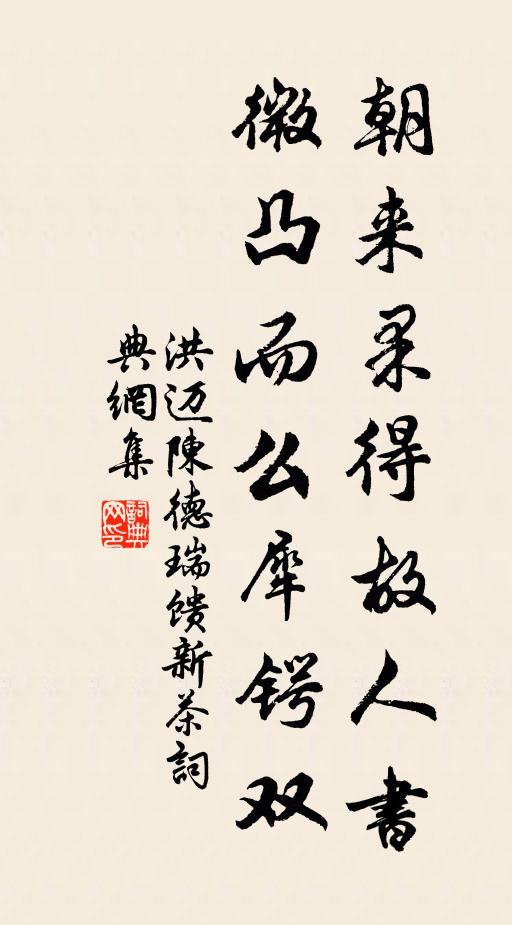 朝来果得故人書
微凸而么犀锷双
洪迈陳德瑞馈新茶詞
典網集
詞典
网印